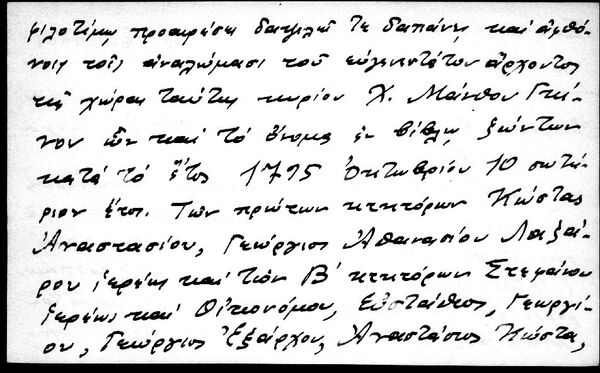 φιλοτίμῳ προαιρέσει δαψιλεῖ τε δαπάνῃ καὶ ἀφθό-
νοις τοῖς ἀναλώμασι τοῦ εὐγενεστάτου ἄρχοντος
τῆς χώρας ταύτης κυρίου Χ. Μάνθου Γκί-
νου ὧν καὶ τὸ ὄνομα ἐν βίβλῳ ζώντων
κατὰ τὸ ἔτος 1795 Ὀκτωβρίου 10 σωτή-
ριον ἔτος. Τῶν πρώτων κτητόρων Κώστας
Ἀναστασίου, Γεώργιος Ἀθανασίου Λαζά-
ρου ἱερέως καὶ τῶν Β΄ κτητόρων Στεφάνου
ἱερέως καὶ Οἰκονόμου, Εὐστάθιος, Γεωργί-
ου, Γεώργιος Ἐξάρχου, Ἀναστάσιος Κώστα,